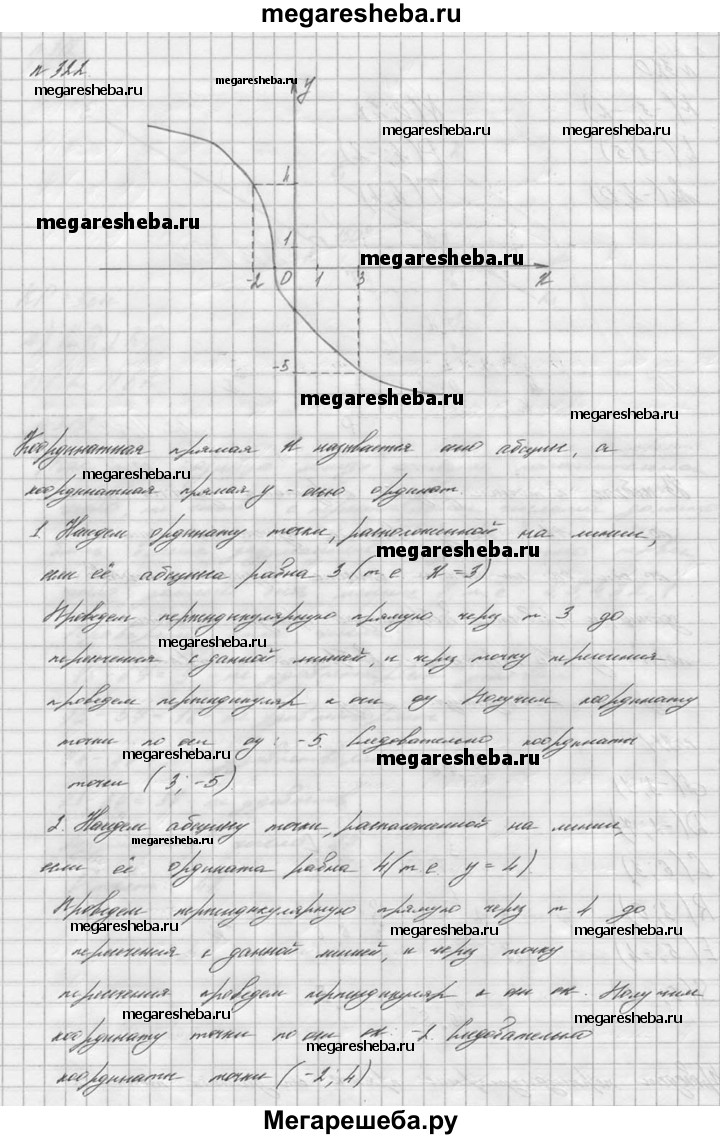 megaresheba.ru
n 322.
megaresheba.ru
megaresheba.ru
y
megaresheba.ru
megaresheba.ru
4
megaresheba.ru
1
megaresheba.ru
-2 0 1 3 x
-5
megaresheba.ru
megaresheba.ru
Координатная прямая x называется осью абсцисс, а
megaresheba.ru
координатная прямая y - осью ординат
megaresheba.ru
1. Найдем ординату точки, расположенной на линии,
megaresheba.ru
если её абсцисса равна 3 (т е x = 3)
Проведем перпендикулярную прямую через т. 3 до
megaresheba.ru
пересечения с данной линией, и через точку пересечения
проведем перпендикуляр к оси оу. Получим координату
точки по оси оу: -5. Следовательно координаты
megaresheba.ru
megaresheba.ru
точки (3; -5)
2. Найдем абсциссу точки, расположенной на линии,
megaresheba.ru
если её ордината равна 4 (т е y = 4)
Проведем перпендикулярную прямую через т 4 до
megaresheba.ru
megaresheba.ru
megaresheba.ru
пересечения с данной линией, и через точку
пересечения проведем перпендикуляр к оси ох. Получим
megaresheba.ru
megaresheba.ru
координату точки по оси ох: -2. Следовательно
megaresheba.ru
координаты точки (-2; 4)
Мегарешеба.ру